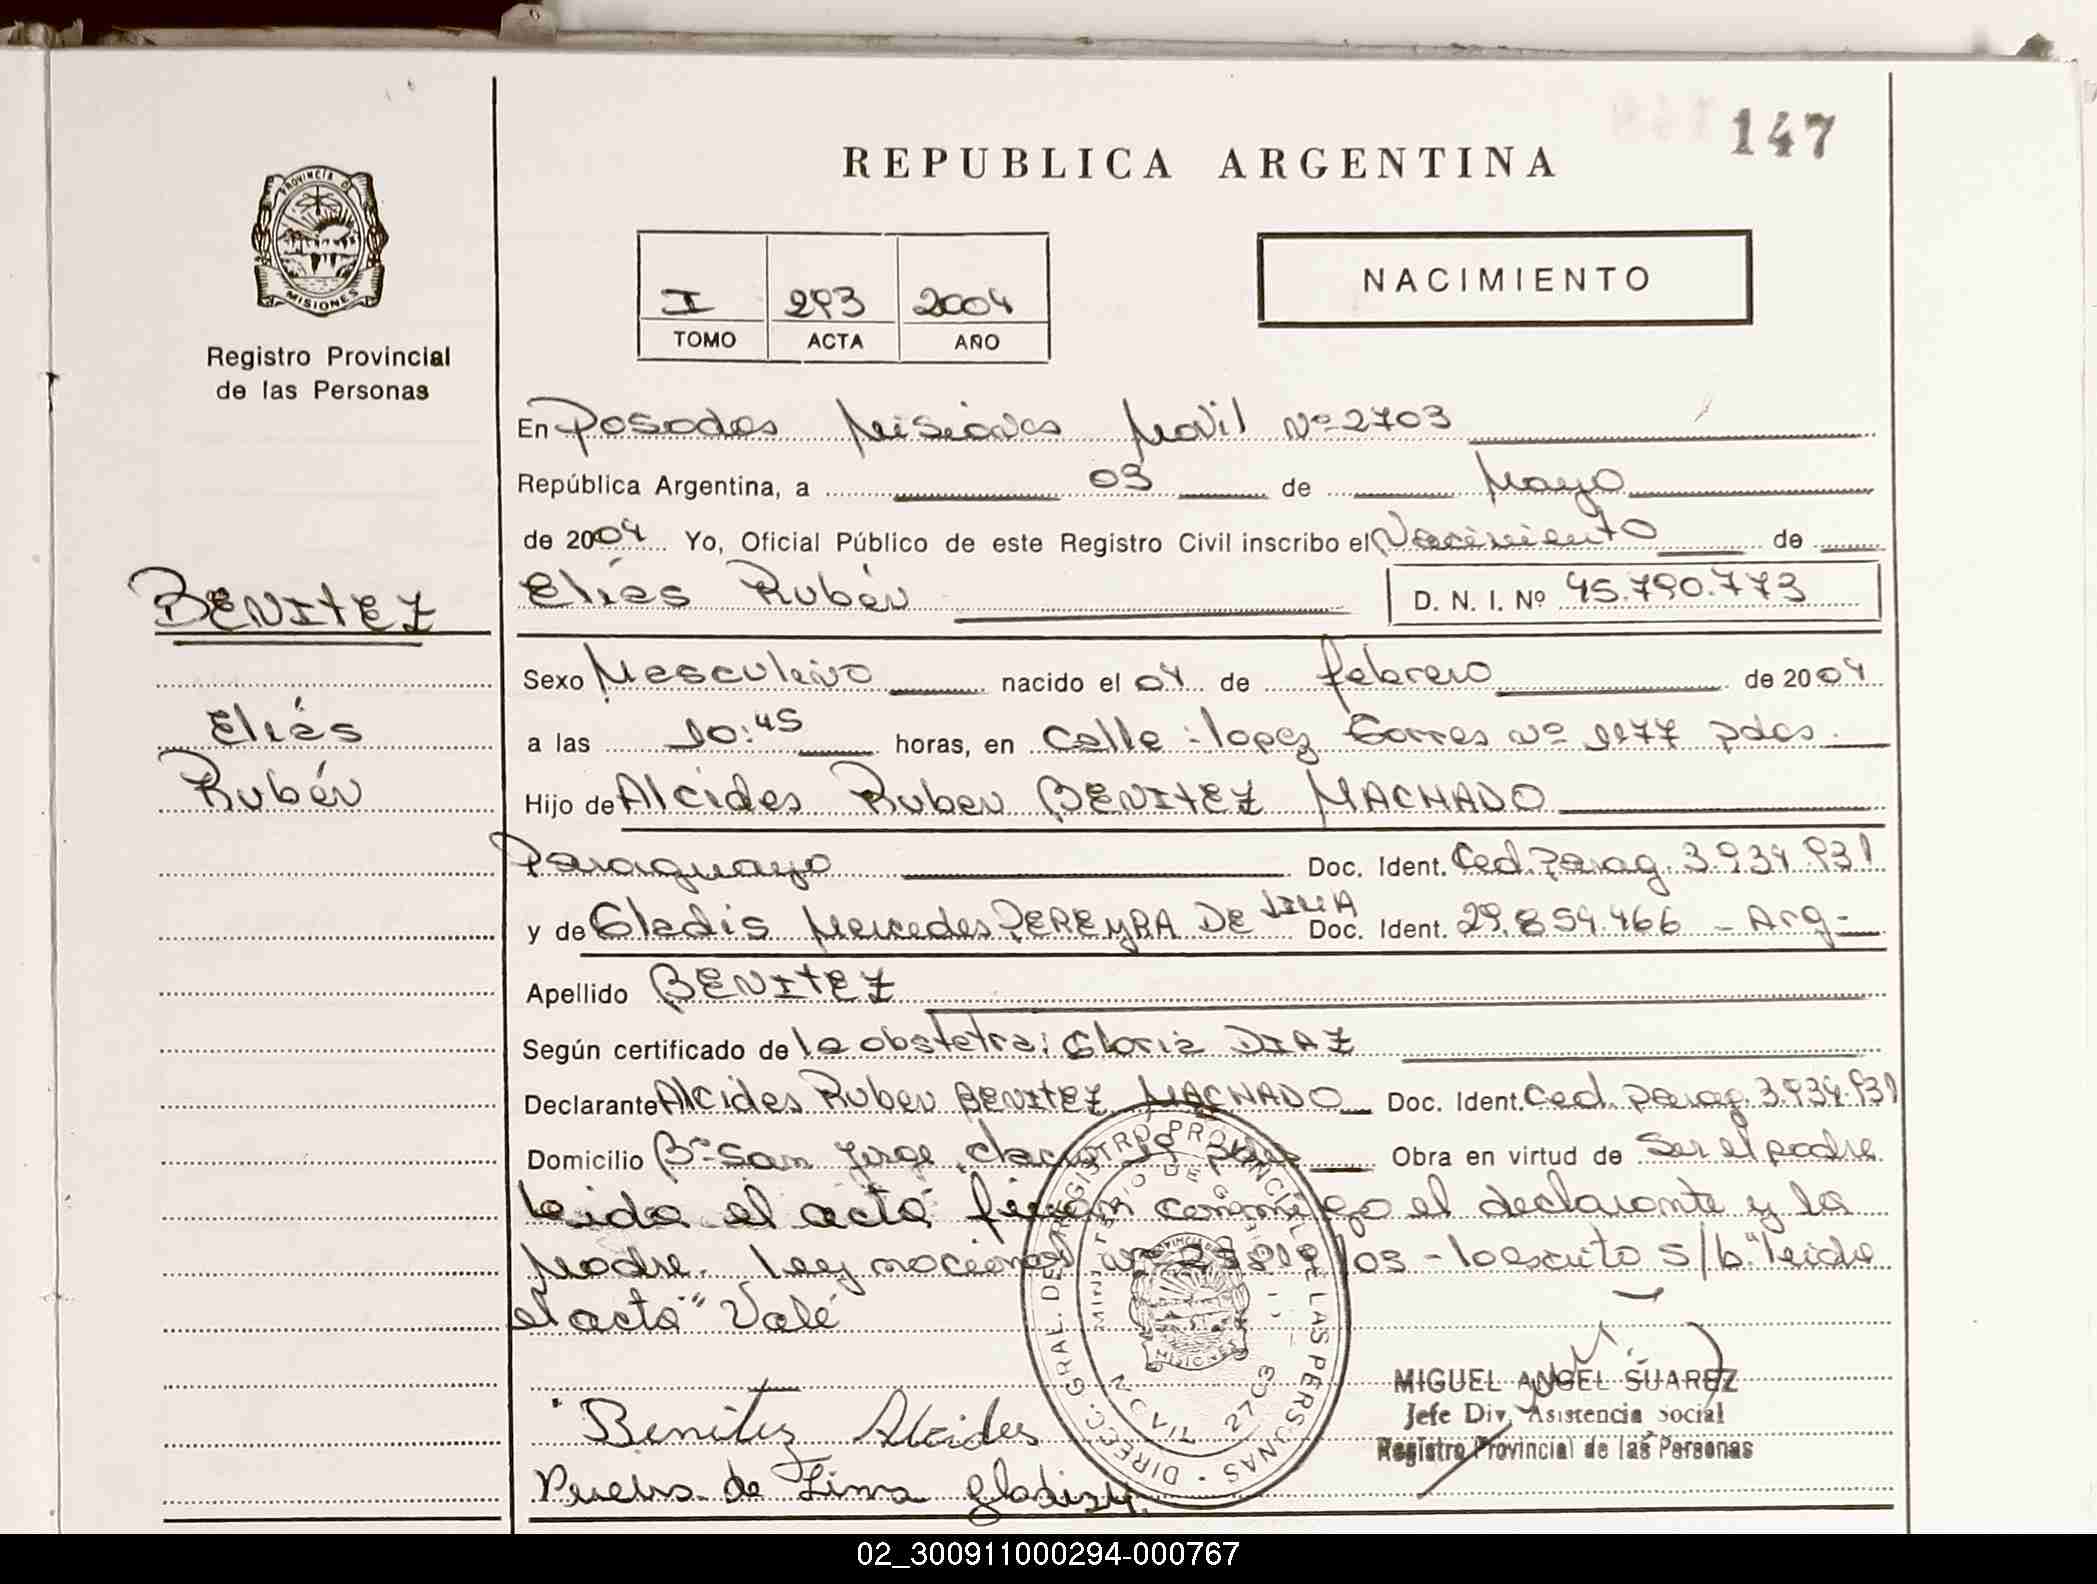 147
REPUBLICA ARGENTINA
PROVINCIA DE
MISIONES
Registro Provincial
de las Personas
I 293 2004
TOMO ACTA AÑO
NACIMIENTO
En Posadas Misiones Movil Nº 2703
República Argentina, a 03 de Mayo
de 2004 Yo, Oficial Público de este Registro Civil inscribo el Nacimiento de
BENITEZ
Elías Rubén D. N. I. Nº 45.790.773
Sexo Masculino nacido el 04 de febrero de 2004
Elías
a las 10:45 horas, en Calle: lopez torres nº 1177 pdas.
Rubén
Hijo de Alcides Ruben BENITEZ MACHADO
Paraguayo Doc. Ident. Ced. Parag. 3.934.931
y de Gladis Mercedes PEREYRA DE LIMA Doc. Ident. 29.854.466 - Arg-
Apellido BENITEZ
Según certificado de la obstetra: Gloria DIAZ
Declarante Alcides Ruben BENITEZ MACHADO Doc. Ident. Ced. Parag. 3.934.931
Domicilio Bº San Jorge, pdas Obra en virtud de Ser el padre
leida el acta firman conmigo el declarante y la
Madre. ley nacional nº 25819/03 - lo escrito s/b "leida
el acta" Vale
DIRECC. GRAL. DEL REGISTRO PROVINCIAL DE LAS PERSONAS
MINISTERIO DE GOBIERNO
MISIONES
MOVIL 2703
MIGUEL ANGEL SUAREZ
Jefe Div. Asistencia Social
Registro Provincial de las Personas
Benitez Alcides
Pereira de Lima gladis M.
02_300911000294-000767